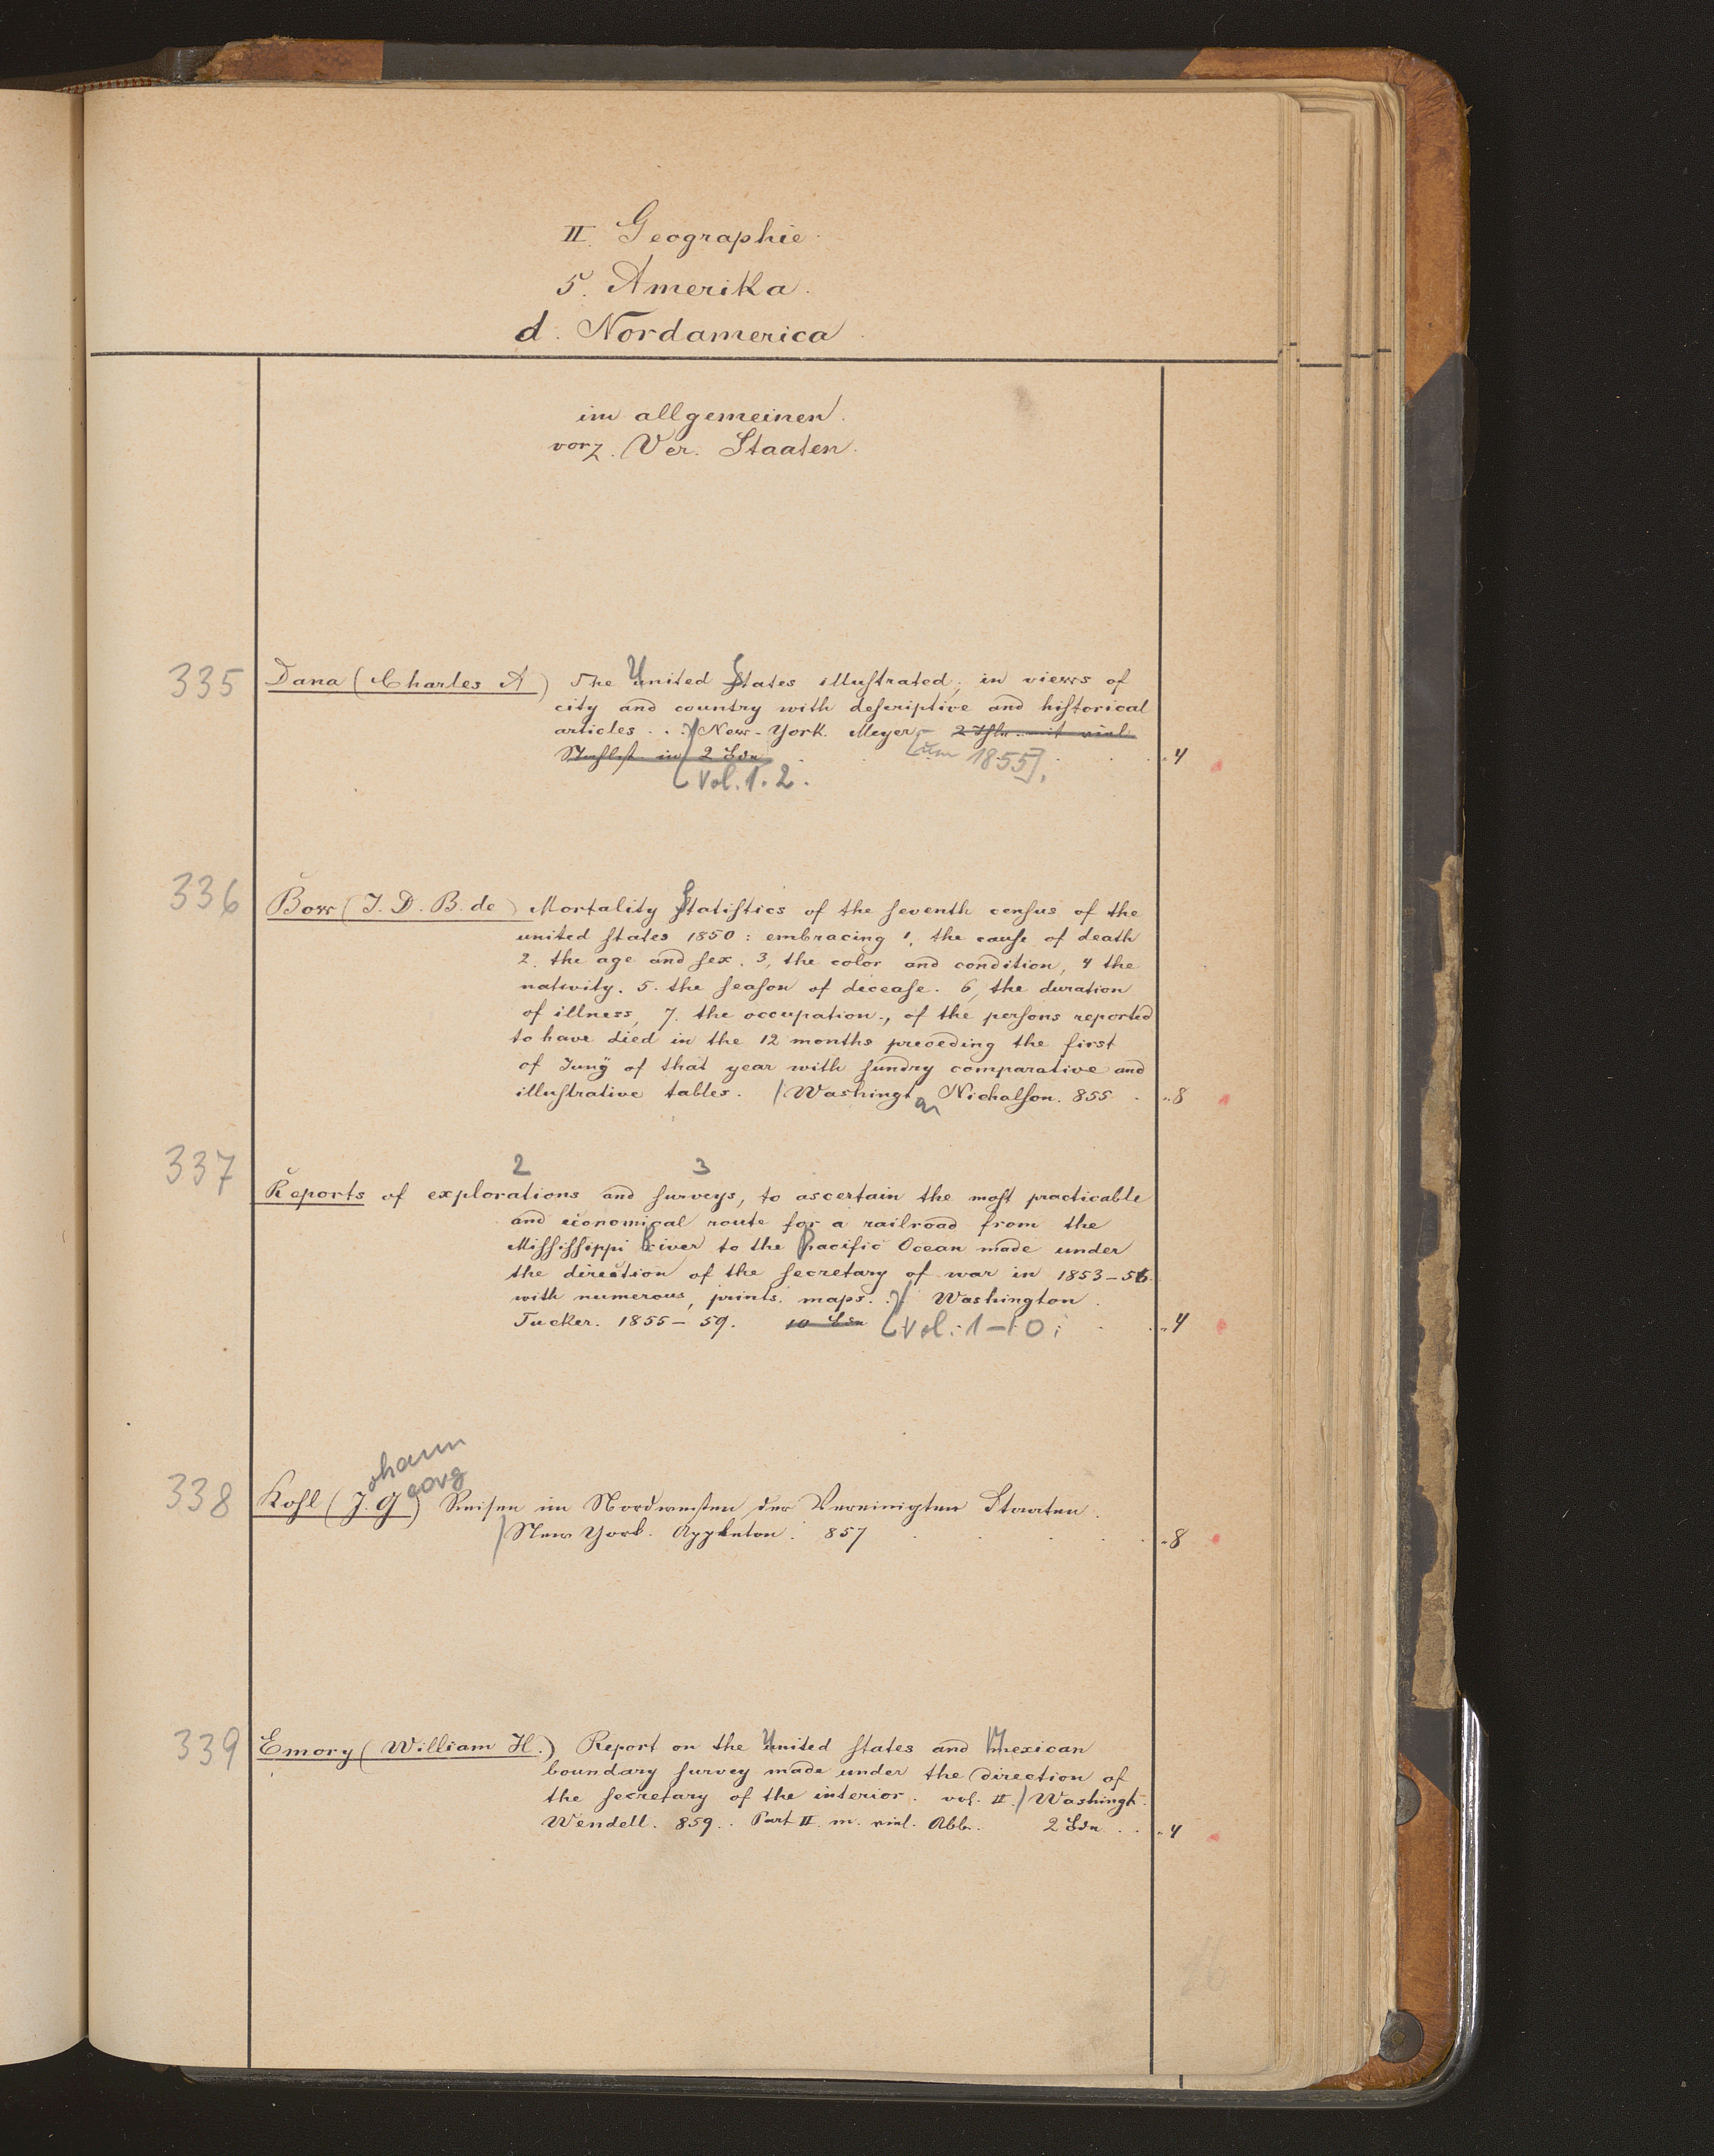 II. Geographie.
5. Amerika.
d. Nordamerica.
im allgemeinen.
vorz. Ver. Staaten.
335 Dana (Charles A) The United States illuſtrated, in views of
city and country with deſcriptive and hiſtorical
articles . . New-York. Meyer. 2 Thle. mit viel.
Stahlſt. in 2 Bdn [um 1855]. 4
Vol. 1. 2.
336 Bow (J. D. B. de) Mortality Statiſtics of the ſeventh cenſus of the
united ſtates 1850 : embracing 1, the cauſe of death
2. the age and ſex. 3, the color and condition, 4 the
nativity. 5. the ſeaſon of deceaſe. 6, the duration
of illness, 7. the occupation., of the perſons reported
to have died in the 12 months preceding the first
of Junÿ of that year with ſundry comparative and
illuſtrative tables. / Washingt on Nicholſon. 855 8
337 2 3
Reports of explorations and ſurveys, to ascertain the moſt practicable
and economical route for a railroad from the
Miſſiſſippi River to the Pacific Ocean made under
the direction of the ſecretary of war in 1853-56.
with numerous, prints. maps. . Washington.
Tucker. 1855-59. 10 Bdn Vol. 1-10. 4
ohann
eorg
338 Kohl (J. G) Reisen im Nordwesten der Vereinigten Staaten.
/ New York. Appleton. 857 8
339 Emory (William H.) Report on the United ſtates and Mexican
boundary ſurvey made under the direction of
the ſecretary of the interior. vol. II. / Washingt.
Wendell. 859. Part II. m. viel. Abb. 2 Bdn 4
16